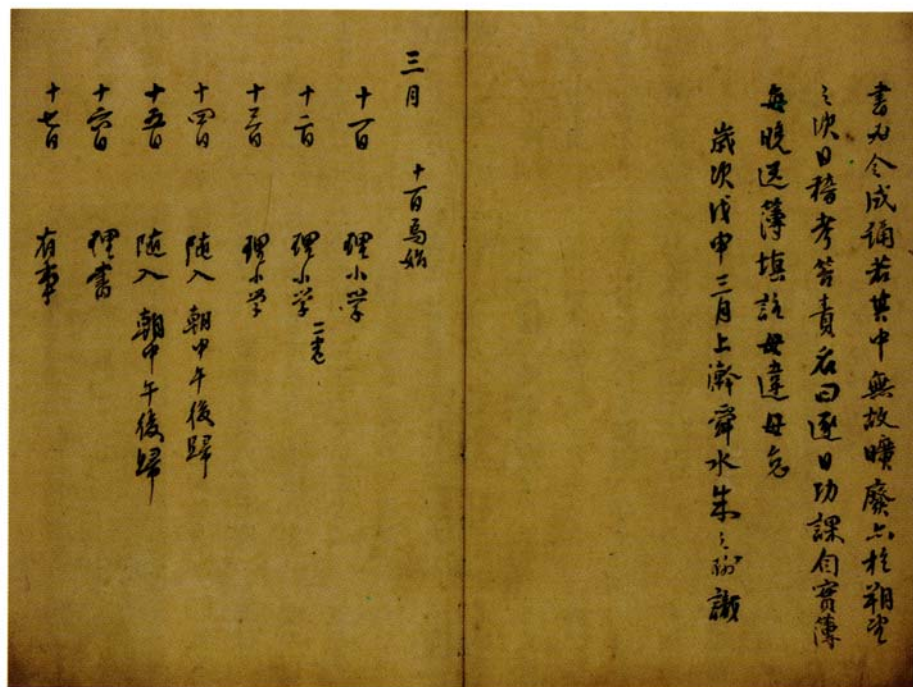 書必令成誦若其中無故曠廢亦於朔望
之次日稽考笞責名曰逐日功課自實簿
每晚送簿填註毋違毋怠
歲次戊申三月上澣舜水朱之瑜識
三月　十一日為始
十一日　理小学
十二日　理小学二巻
十三日　理小学
十四日　随入　朝中午後歸
十五日　随入　朝中午後歸
十六日　理書
十七日　有事